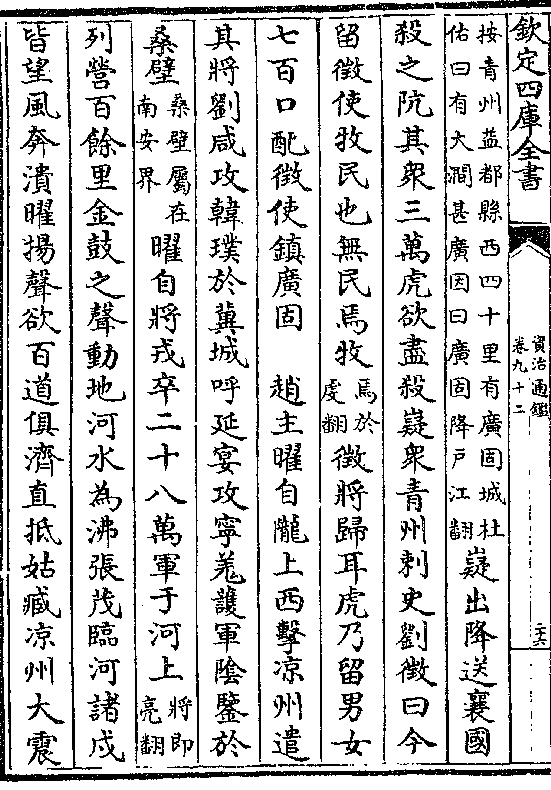 欽定四庫全書
資治通鑑
卷九十二
二六
按青州益都縣西四十里有廣固城杜
佑曰有大澗甚廣因曰廣固降戶江翻
嶷出降送襄國
殺之阬其衆三萬虎欲盡殺嶷衆青州刺史劉徵曰今
留徵使牧民也無民焉牧
焉於
虔翻
徵將歸耳虎乃留男女
七百口配徵使鎮廣固 趙主曜自隴上西擊涼州遣
其將劉咸攻韓璞於冀城呼延宴攻寧羗護軍陰鑒於
桑壁
桑壁屬在
南安界
曜自將戎卒二十八萬軍于河上
將即
亮翻
列營百餘里金鼓之聲動地河水為沸張茂臨河諸戍
皆望風奔潰曜揚聲欲百道俱濟直抵姑臧凉州大震